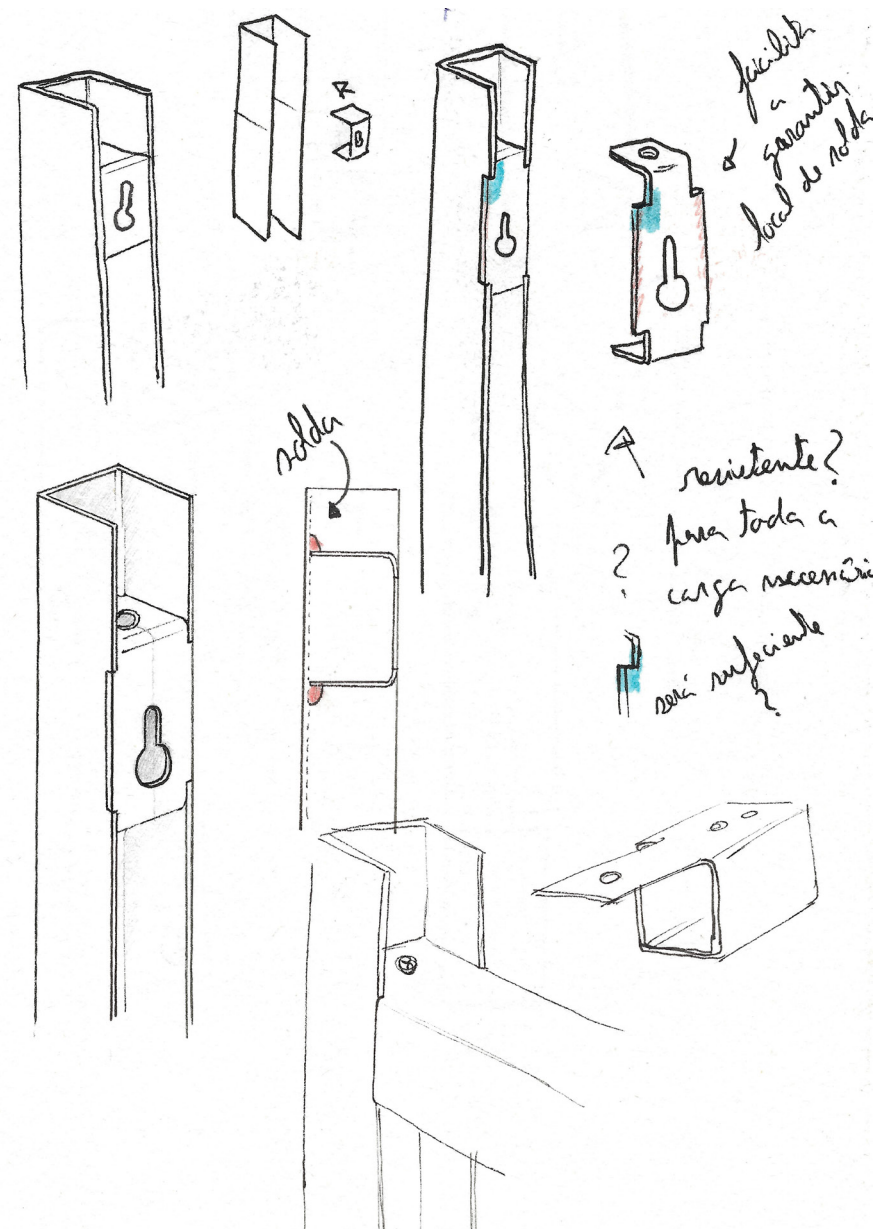 facilita
a
garantir
local de solda
solda
resistente?
para toda a
carga necessária
?
será suficiente
?